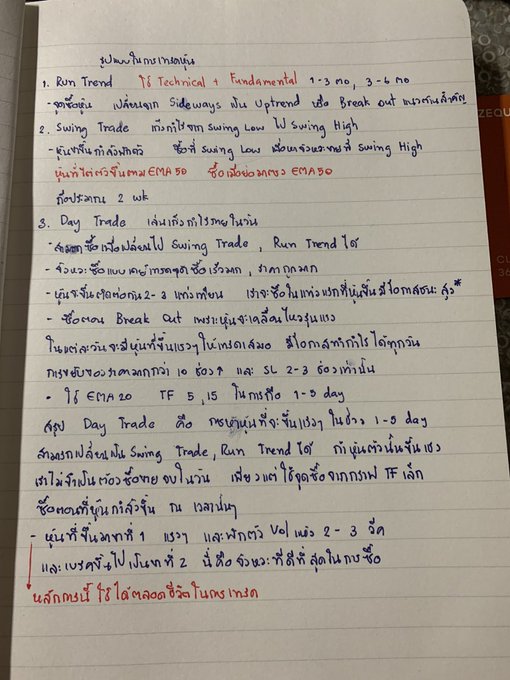 รูปแบบในการเทรดหุ้น
1. Run Trend ใช้ Technical + Fundamental 1-3 mo, 3-6 mo
- จุดซื้อหุ้น เปลี่ยนจาก Sideways เป็น Uptrend หรือ Break out แนวต้านสำคัญ
2. Swing Trade เก็งกำไรจาก Swing Low ไป Swing High
- หุ้นขาขึ้นกำลังพักตัว ซื้อที่ Swing Low เพื่อหาจังหวะขายที่ Swing High
หุ้นที่ไต่ตัวขึ้นตาม EMA 50 ซื้อเมื่อย่อมาตรง EMA 50
ถือประมาณ 2 wk
3. Day Trade เล่นเก็งกำไรภายในวัน
- สามารถซื้อเพื่อเปลี่ยนไป Swing Trade, Run Trend ได้
- จังหวะซื้อแบบเดย์เทรดจุดซื้อเร็วมาก, ราคาถูกมาก
- หุ้นจะขึ้นติดต่อกัน 2-3 แท่งเทียน เราจะซื้อในแท่งแรกที่หุ้นขึ้นมีโอกาสชนะสูง*
- ซื้อตอน Break Out เพราะหุ้นจะเคลื่อนไหวรุนแรง
ในแต่ละวันจะมีหุ้นที่ขึ้นแรงๆ ให้เทรดเสมอ มีโอกาสทำกำไรได้ทุกวัน
การขยับของราคามากกว่า 10 ช่อง↑ และ SL 2-3 ช่องเท่านั้น
• ใช้ EMA 20 TF 5, 15 ในการถือ 1-5 day
สรุป Day Trade คือ การหาหุ้นที่จะขึ้นแรงๆ ในช่วง 1-5 day
สามารถเปลี่ยนเป็น Swing Trade, Run Trend ได้ ถ้าหุ้นตัวนั้นขึ้นแรง
เราไม่จำเป็นต้องซื้อขายจบในวัน เพียงแต่ใช้จุดซื้อจากกราฟ TF เล็ก
ซื้อตอนที่หุ้นกำลังขึ้น ณ เวลานั้นๆ
- หุ้นที่ขึ้นขาที่ 1 แรงๆ และพักตัว Vol แห้ง 2-3 วีค
และเบรคขึ้นไปเป็นขาที่ 2 นี่คือจังหวะที่ดีที่สุดในการซื้อ
หลักการนี้ใช้ได้ตลอดชีวิตในการเทรด